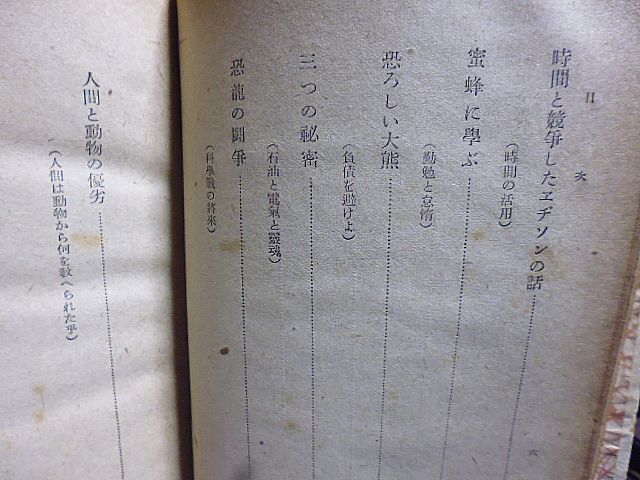 目次
時間と競爭したエヂソンの話
(時間の活用)
六
蜜蜂に學ぶ
(勤勉と怠惰)
恐ろしい大熊
(負債を避けよ)
三つの秘密
(石油と電氣と靈魂)
恐龍の闘爭
(科學戰の將來)
人間と動物の優劣
(人間は動物から何を敎へられた乎)